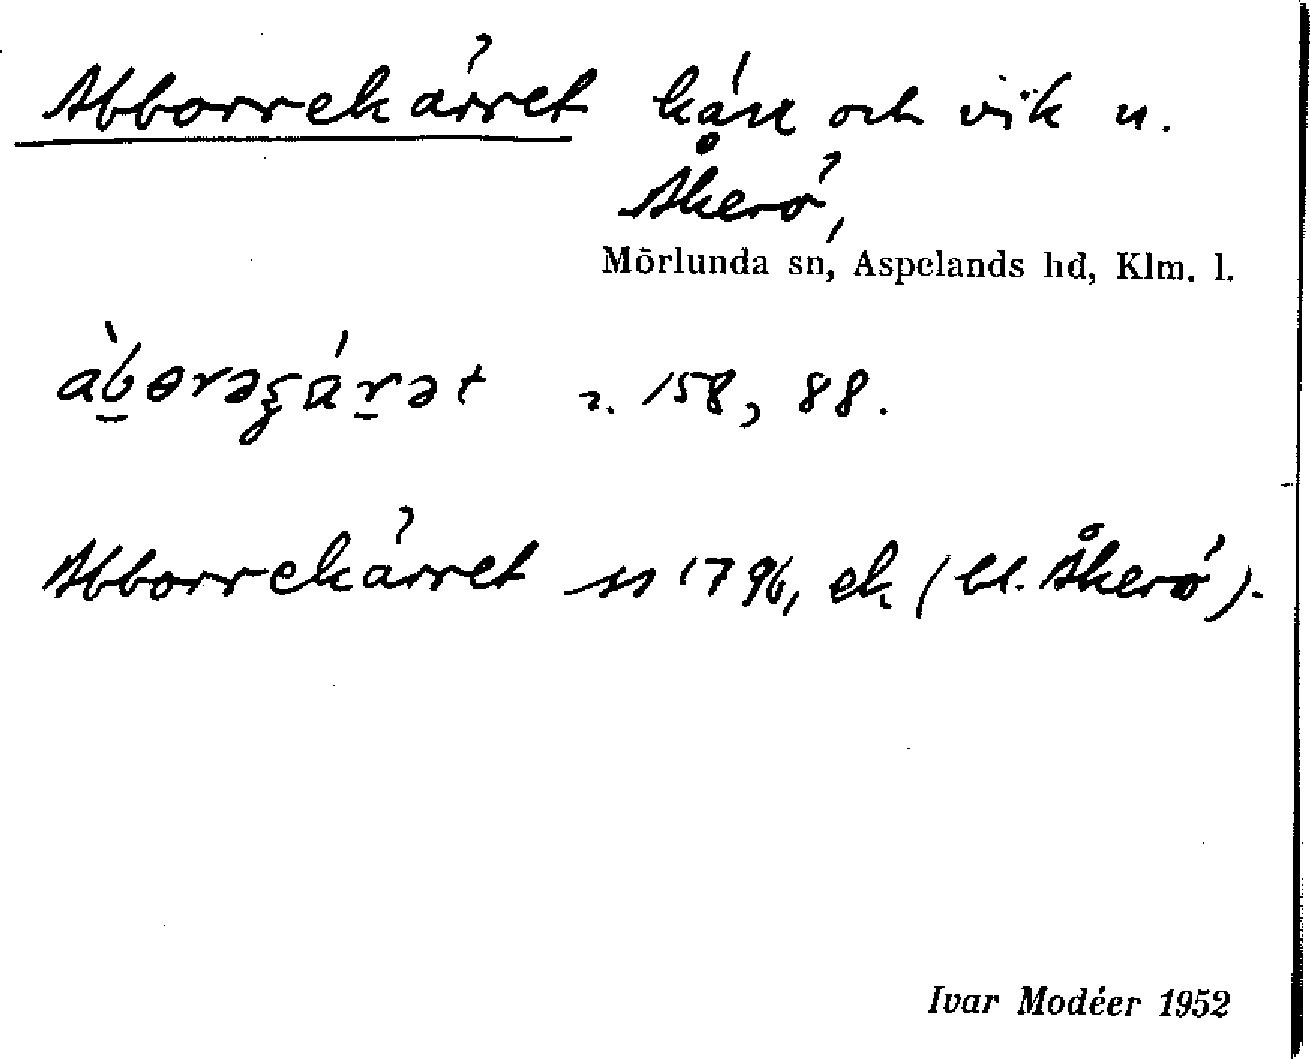 Abborrekärret kärr och vik u.
Åkerö,
Mörlunda sn, Aspelands hd, Klm. l.
2. 158, 88.
Abborrekärret 1796, ek (bl. Åkerö).
Ivar Modéer 1952